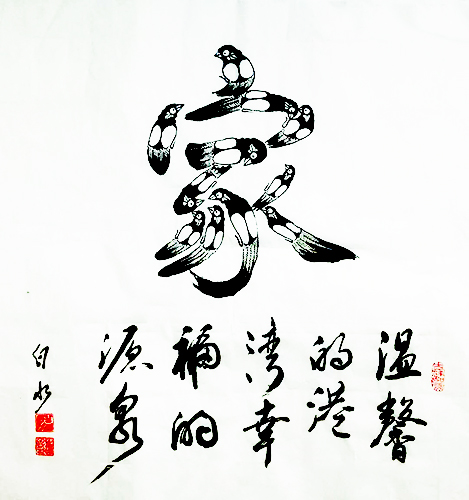 家
温馨
的港
湾幸
福的
源泉
白水